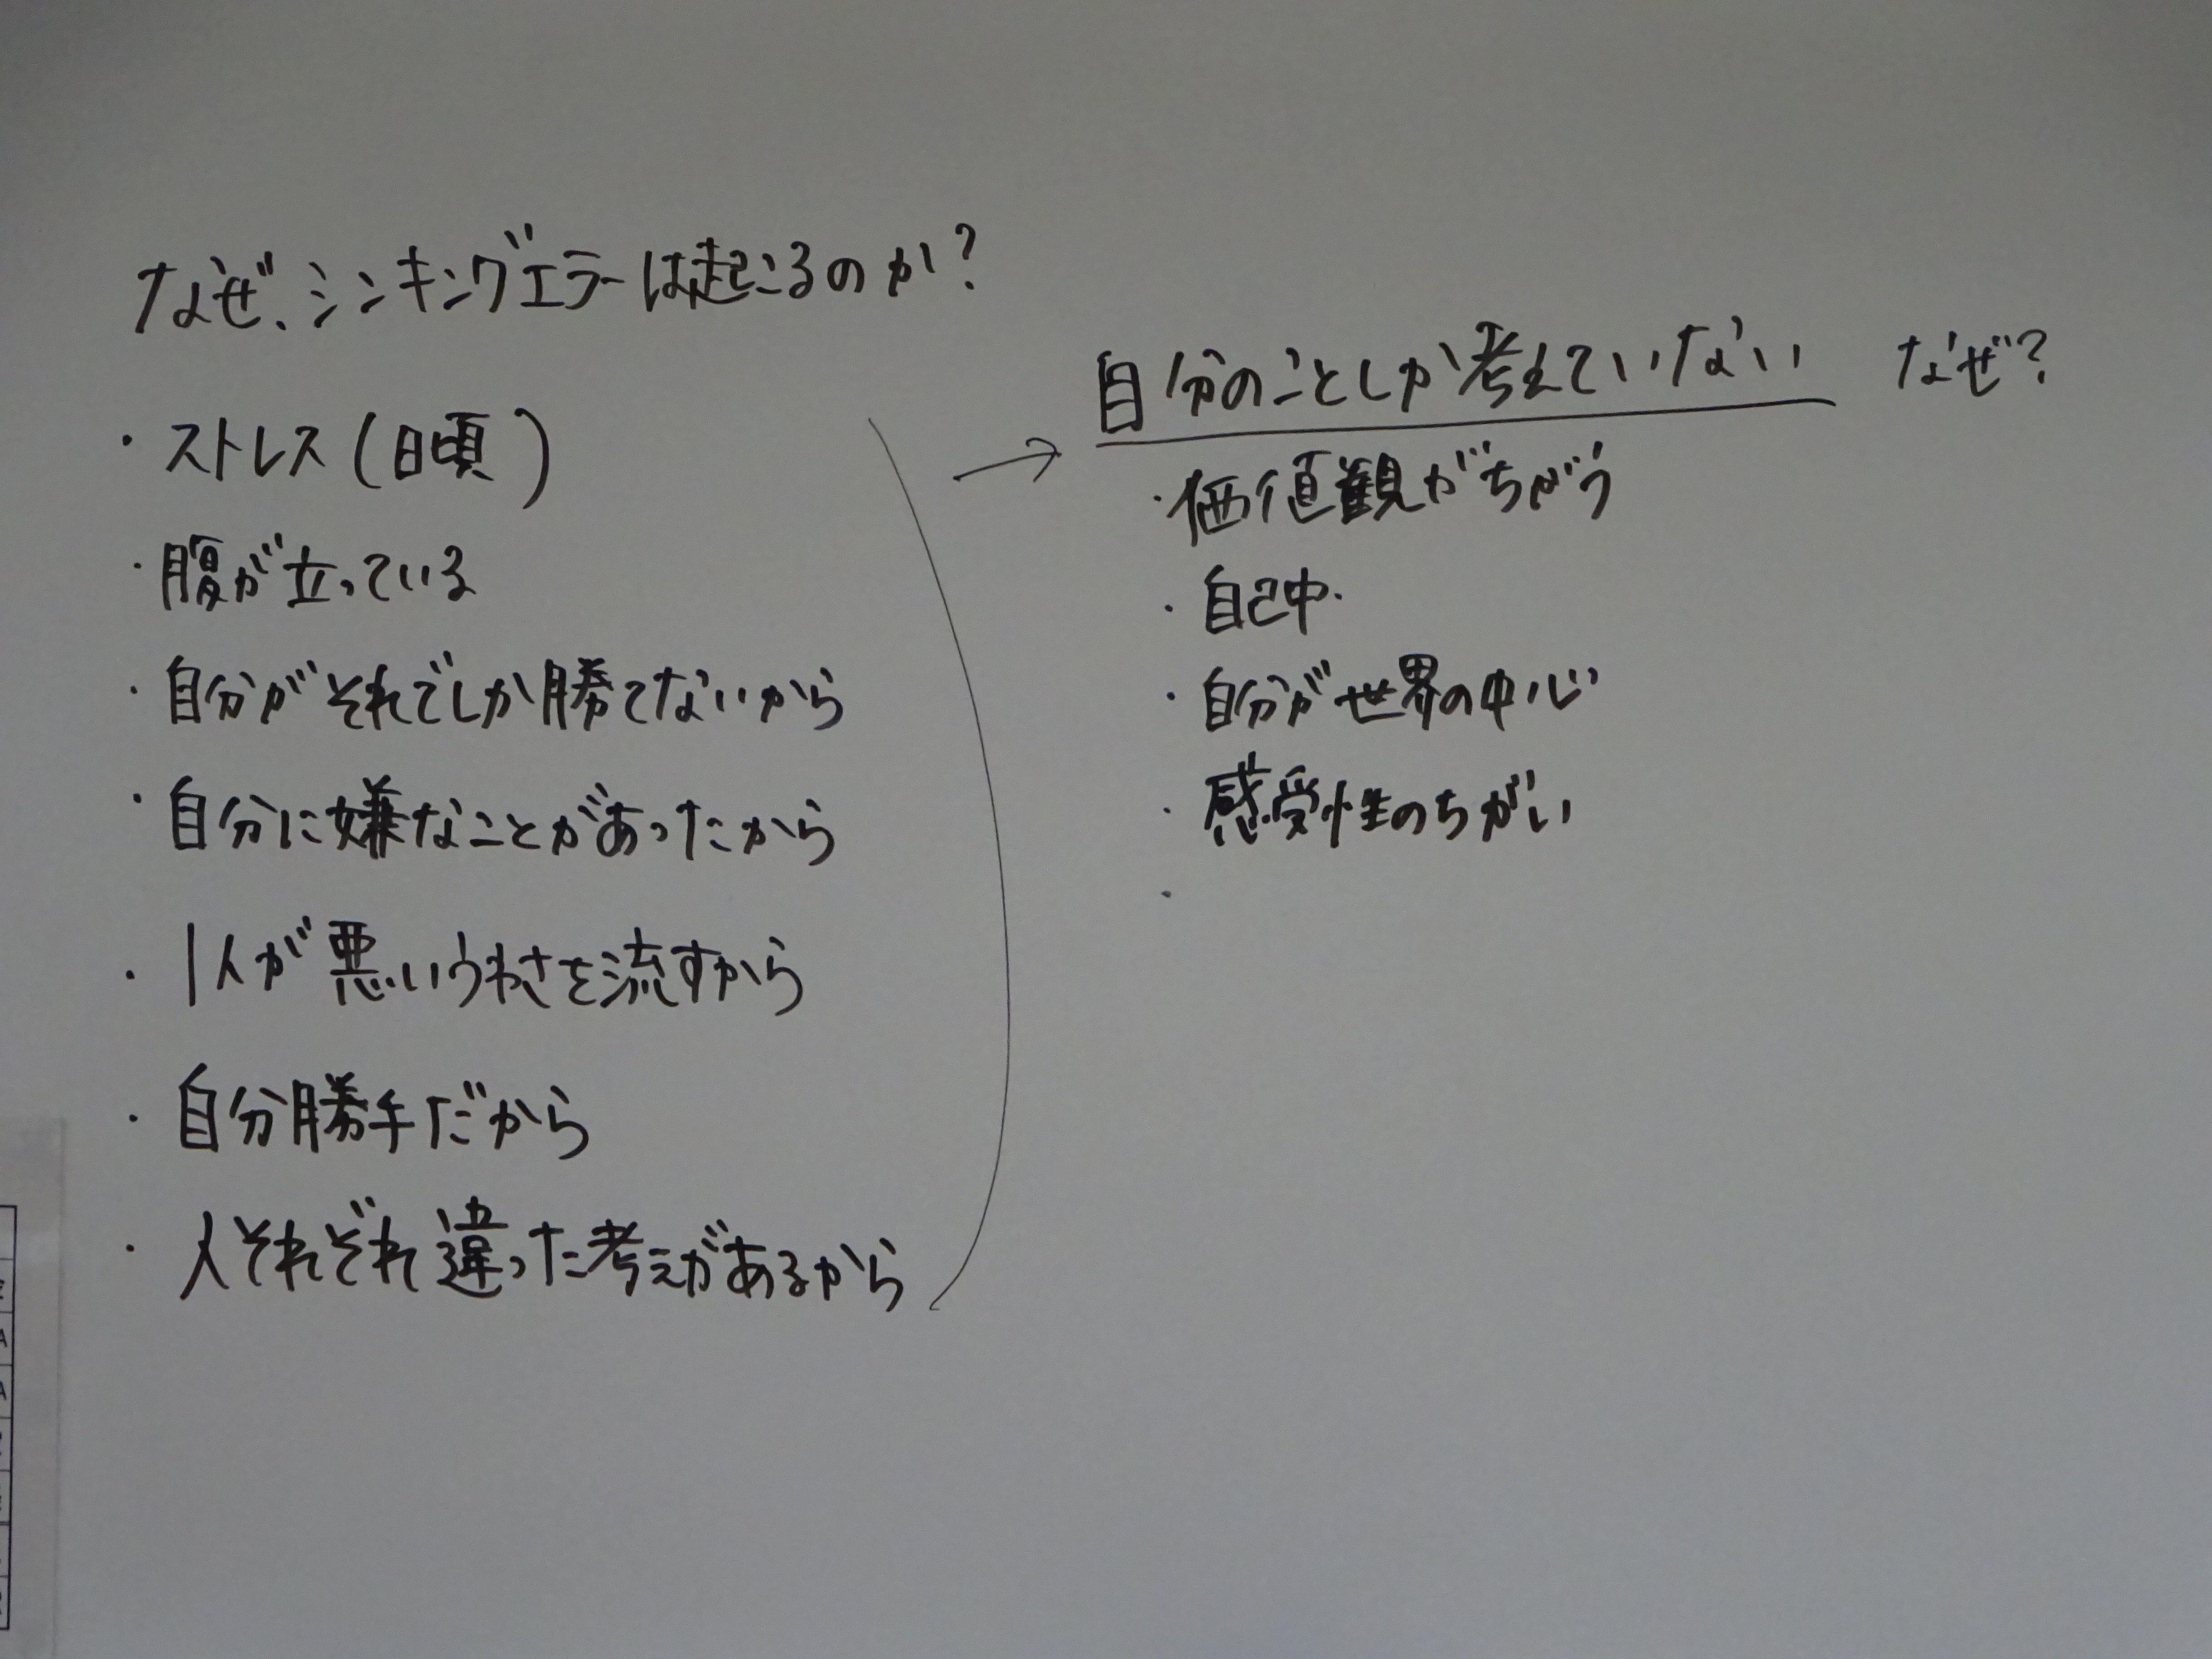 なぜ、シンキングエラーは起こるのか?
・ストレス(日頃)
・腹が立っている
・自分がそれでしか勝てないから
・自分に嫌なことがあったから
・1人が悪いうわさを流すから
・自分勝手だから
・人それぞれ違った考えがあるから
→ 自分のことしか考えていない なぜ?
・価値観がちがう
・自己中.
・自分が世界の中心
・感受性のちがい
・